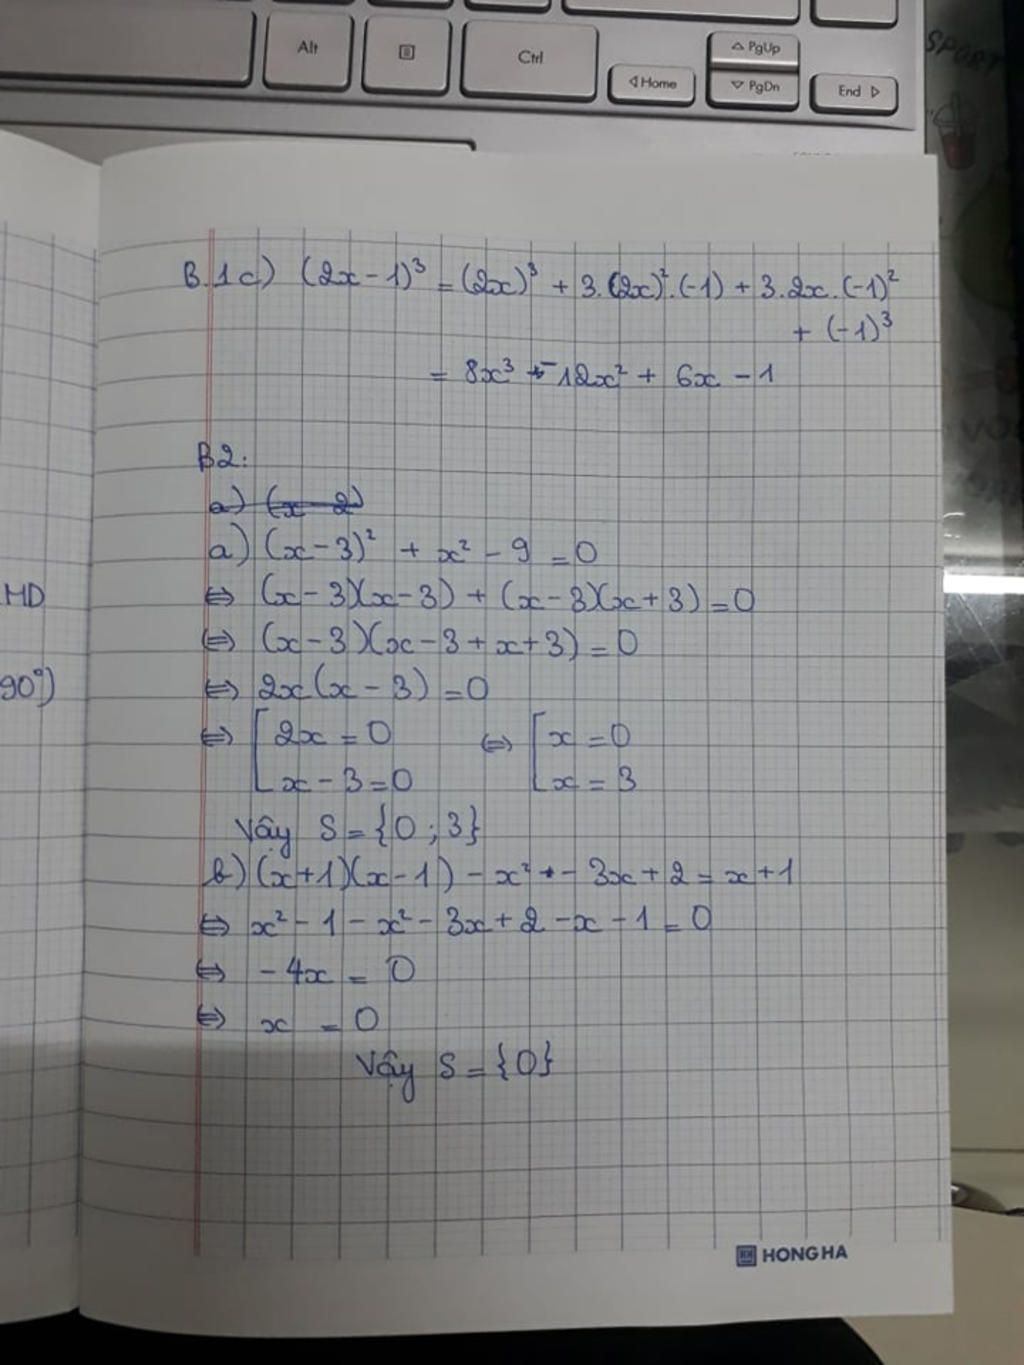 Alt
Ctrl
Home
PgUp
PgDn
End
SPORT
B.1c) (2x - 1)³ = (2x)³ + 3.(2x)².(-1) + 3.2x.(-1)²
+ (-1)³
= 8x³ - 12x² + 6x - 1
B2:
a) (x - 2)
a) (x - 3)² + x² - 9 = 0
⇔ (x - 3)(x - 3) + (x - 3)(x + 3) = 0
⇔ (x - 3)(x - 3 + x + 3) = 0
MD
⇔ 2x(x - 3) = 0
90°)
⇔ [ 2x = 0 ⇔ [ x = 0
x - 3 = 0 x = 3
Vậy S = {0 ; 3}
b) (x + 1)(x - 1) - x² - 3x + 2 = x + 1
⇔ x² - 1 - x² - 3x + 2 - x - 1 = 0
⇔ - 4x = 0
⇔ x = 0
Vậy S = {0}
HONG HA